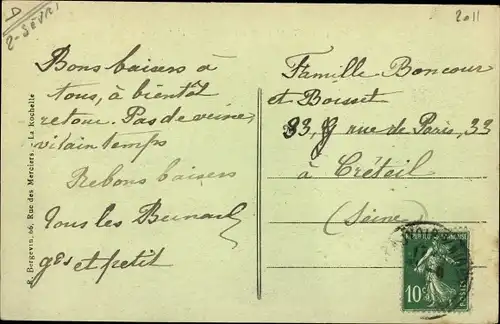 D
2-SÈVRE
2011
Bons baisers à
tous, à bientôt
retour. Pas de veine,
vilain temps
Rebons baisers
Tous les Bernard
gds et petit
Famille Boncour
et Boisset
33, rue de Paris, 33
à Créteil
(Seine)
R. Bergevin, 66, Rue des Merciers - La Rochelle
10c